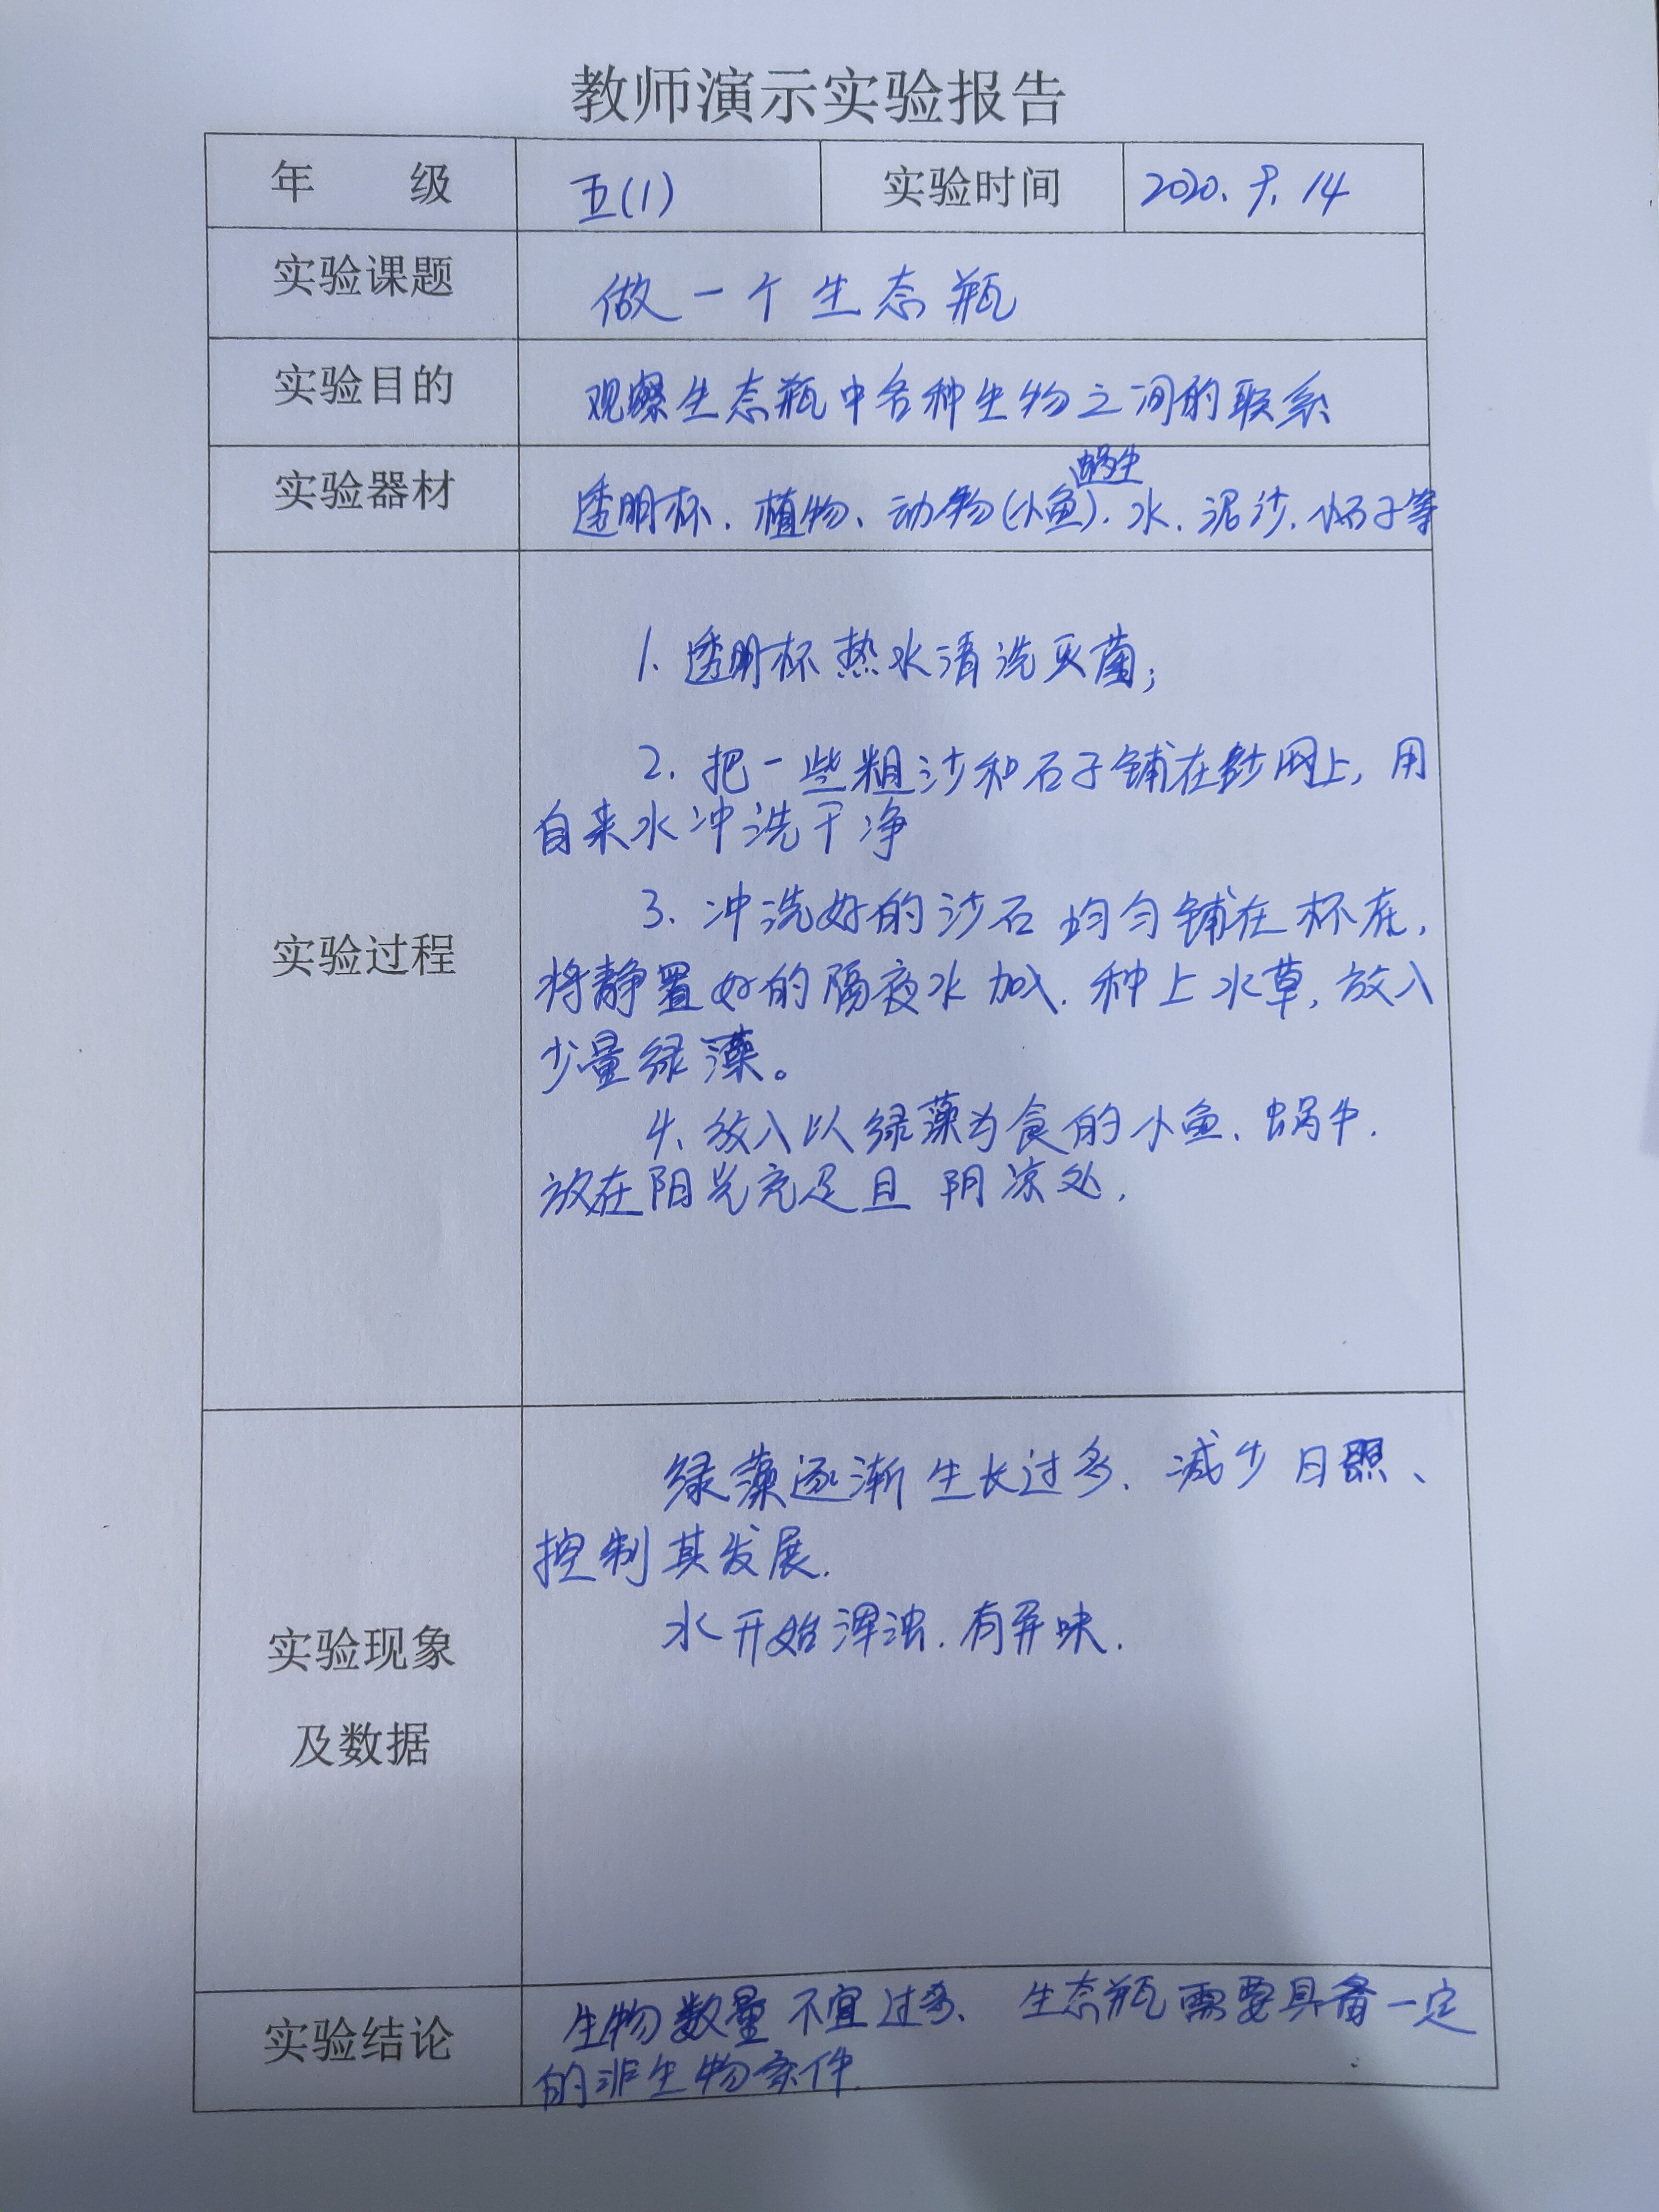 教师演示实验报告
年 级 五(1) 实验时间 2020.9.14
实验课题 做一个生态瓶
实验目的 观察生态瓶中各种生物之间的联系
蜗牛
实验器材 透明杯、植物、动物(小鱼)、水、泥沙、小石子等
1. 透明杯热水清洗灭菌;
2. 把一些粗沙和石子铺在纱网上, 用
自来水冲洗干净
3. 冲洗好的沙石均匀铺在杯底,
实验过程
将静置好的隔夜水加入. 种上水草, 放入
少量绿藻。
4、放入以绿藻为食的小鱼、蜗牛.
放在阳光充足且阴凉处.
绿藻逐渐生长过多、减少日照、
控制其发展.
水开始浑浊. 有异味.
实验现象
及数据
生物数量不宜过多、生态瓶需要具备一定
实验结论
的非生物条件.